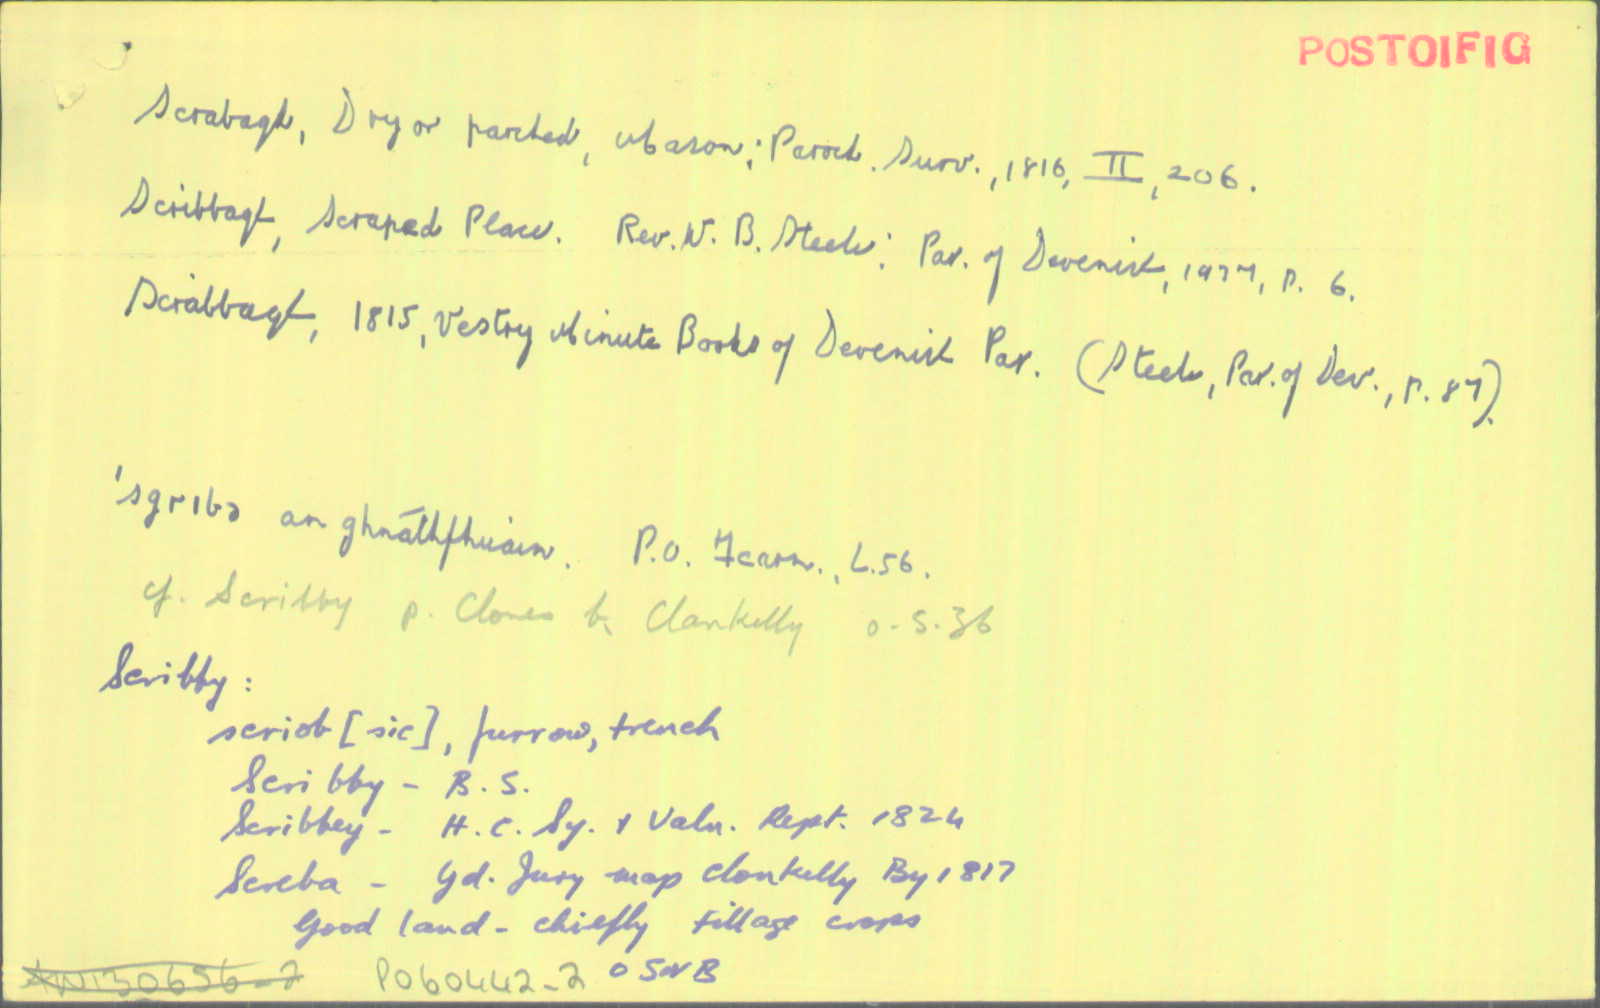 POSTOIFIG
Scrabagh, Dry or parched, Mason; Paroch. Surv., 1816, II, 206.
Scribbagh, Scraped Place. Rev. W. B. Steele: Par. of Devenish, 1937, p. 6.
Scrabbagh, 1815, Vestry Minute Books of Devenish Par. (Steele, Par. of Dev., p. 87).
'sgribə an ghnáthfhuaim. P.O. Fearm., L.56.
cf. Scribby p. Clones b. Clankelly O.S.36
Scribby:
scriob [sic], furrow, trench
Scribby - B.S.
Scribbey - H.C. Sy. & Valn. Rept. 1824
Screba - Gd. Jury map Clonkelly By 1817
Good land - chiefly tillage crops
AW130656-2 P060442-2 OSNB